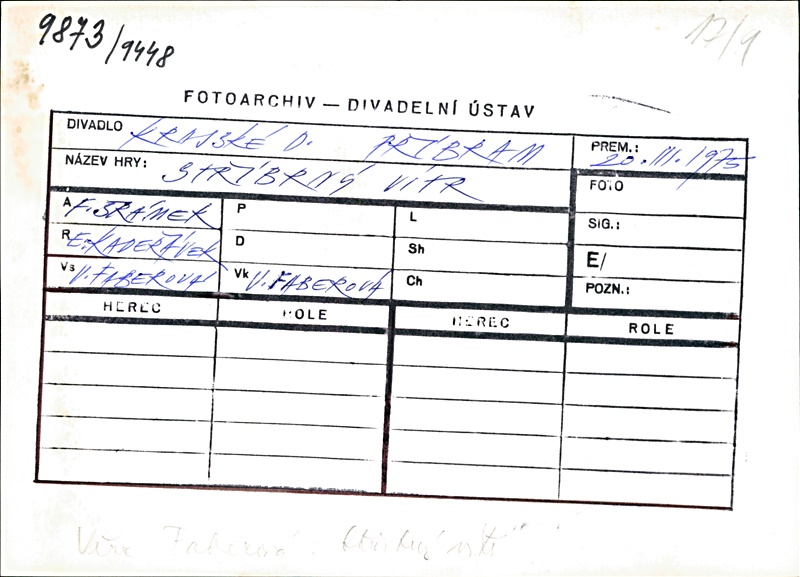 9873/9448
17/9
FOTOARCHIV — DIVADELNÍ ÚSTAV
DIVADLO KRAJSKÉ D. PŘÍBRAM
PREM.: 20.III.1975
NÁZEV HRY: STŘÍBRNÝ VÍTR
FOTO
A F. ŠRÁMEK
P
L
SIG.:
R E. KADEŘÁVEK
D
Sh
E/
Vs V. FABEROVÁ
Vk V. FABEROVÁ
Ch
POZN.:
HEREC ROLE HEREC ROLE
Věra Faberová: Stříbrný vítr